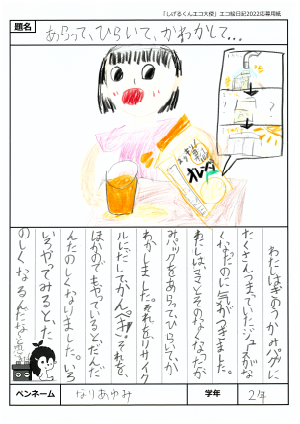 「しげるくんエコ大使」エコ絵日記2022応募用紙
題名
あらって、ひらいて、かわかして…
オレンジ
わたしはぎゅうにゅうパックに
たくさんつまっていたジュースがな
くなったのに気がつきました。
わたしは
みパックをあらって、ひらいて、か
わかしました。それをリサイク
ルに だしてかんぺき!それを、
ほかのでもやっているとだんだ
んたのしくなりました。いろ
いろやってみると、た
のしくなるんだなと
ペンネーム
なりあゆみ
学年
2年